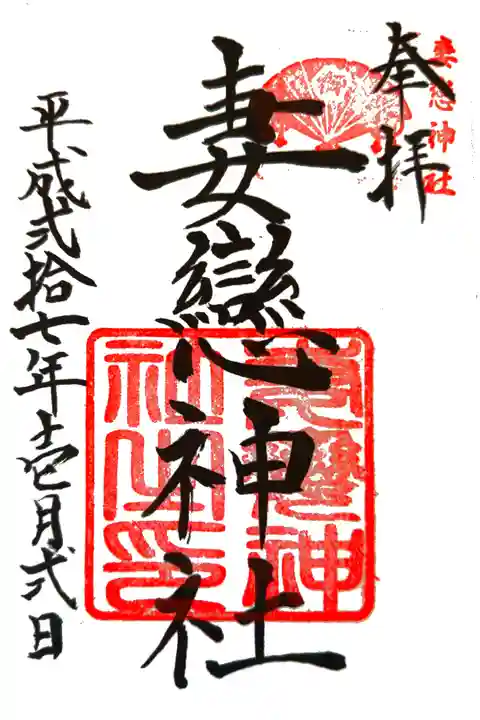 妻恋神社
奉拝
妻戀神社
妻戀神社之印
平成弐拾七年壱月弐日